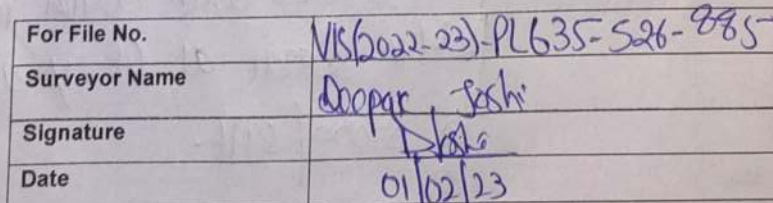 For File No. VIS(2022-23)-PL635-526-885
Surveyor Name Deepak Joshi
Signature DJoshi
Date 01/02/23